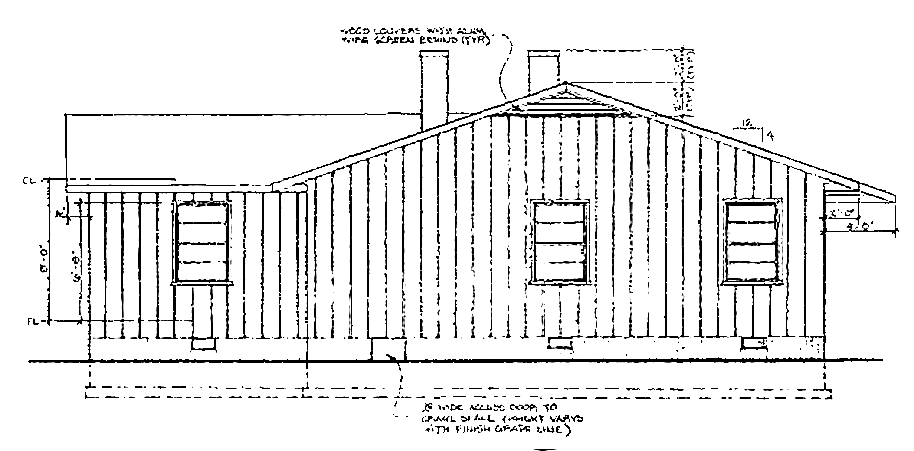 WOOD LOUVERS WITH ALUM.
WIRE SCREEN BEHIND (TYP.)
12
4
CL
2'
8'-0"
6'-8"
FL
2'-0"
4'-0"
WIDE ACCESS DOOR TO
CRAWL SPACE (HEIGHT VARYS
WITH FINISH GRADE LINE)